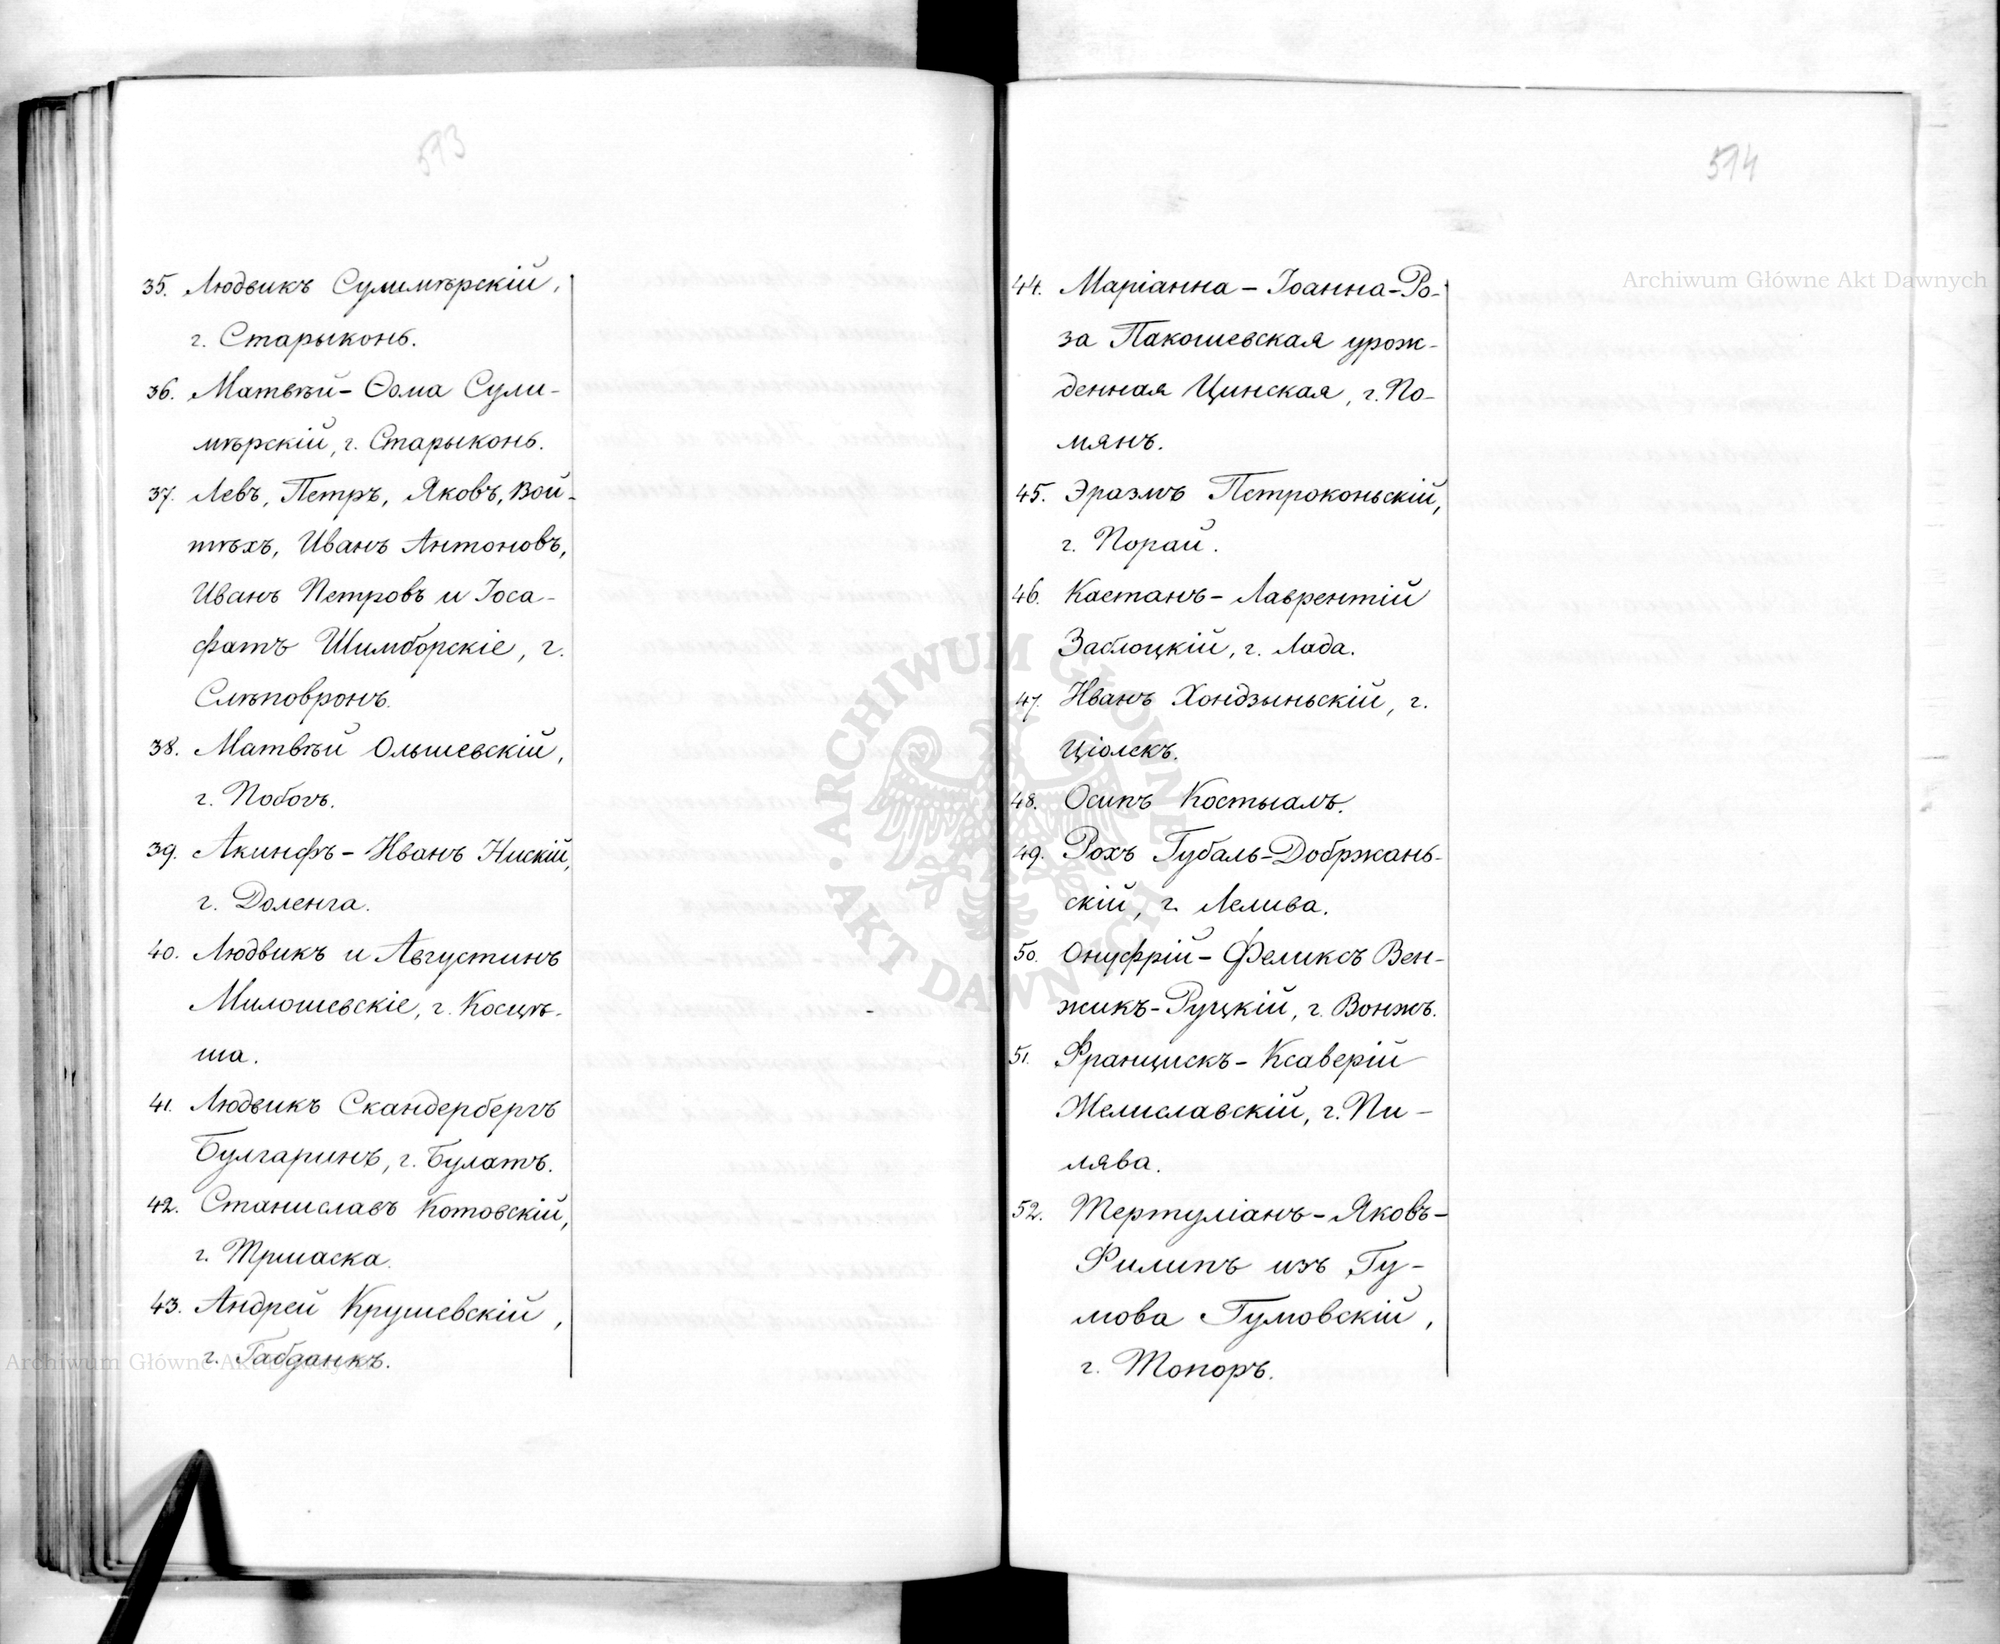 593
35. Людвикъ Сулимѣрскій,
г. Старыконь.
36. Матвѣй-Ѳома Сули-
мѣрскій, г. Старыконь.
37. Левъ, Петръ, Яковъ, Вой-
тѣхъ, Иванъ Антоновъ,
Иванъ Петровъ и Іоса-
фатъ Шимборскіе, г.
Слѣповронъ.
38. Матвѣй Ольшевскій,
г. Побогъ.
39. Акинфъ-Иванъ Нискій,
г. Доленга.
40. Людвикъ и Августинъ
Милошевскіе, г. Косцѣ-
ша.
41. Людвикъ Скандербергъ
Булгаринъ, г. Булатъ.
42. Станиславъ Котовскій,
г. Тршаска.
43. Андрей Крушевскій,
г. Габданкъ.
594
44. Маріанна-Іоанна-Ро-
за Пакошевская урож-
денная Цинская, г. По-
мянъ.
45. Эразмъ Петроконьскій,
г. Порай.
46. Каетанъ-Лаврентій
Заблоцкій, г. Лада.
47. Иванъ Хондзыньскій, г.
Ціолекъ.
48. Осипъ Костыалъ.
49. Рохъ Губаль-Добржань-
скій, г. Лелива.
50. Онуфрій-Феликсъ Вен-
жикъ-Руцкій, г. Вонжъ.
51. Францискъ-Ксаверій
Желиславскій, г. Пи-
лява.
52. Тертуліанъ-Яковъ-
Филипъ изъ Гу-
мова Гумовскій,
г. Топоръ.
Archiwum Główne Akt Dawnych
Archiwum Główne Akt Dawnych
ARCHIWUM GŁÓWNE AKT DAWNYCH